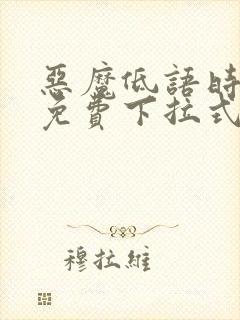 惡魔低語時
免費下拉式
穆拉維